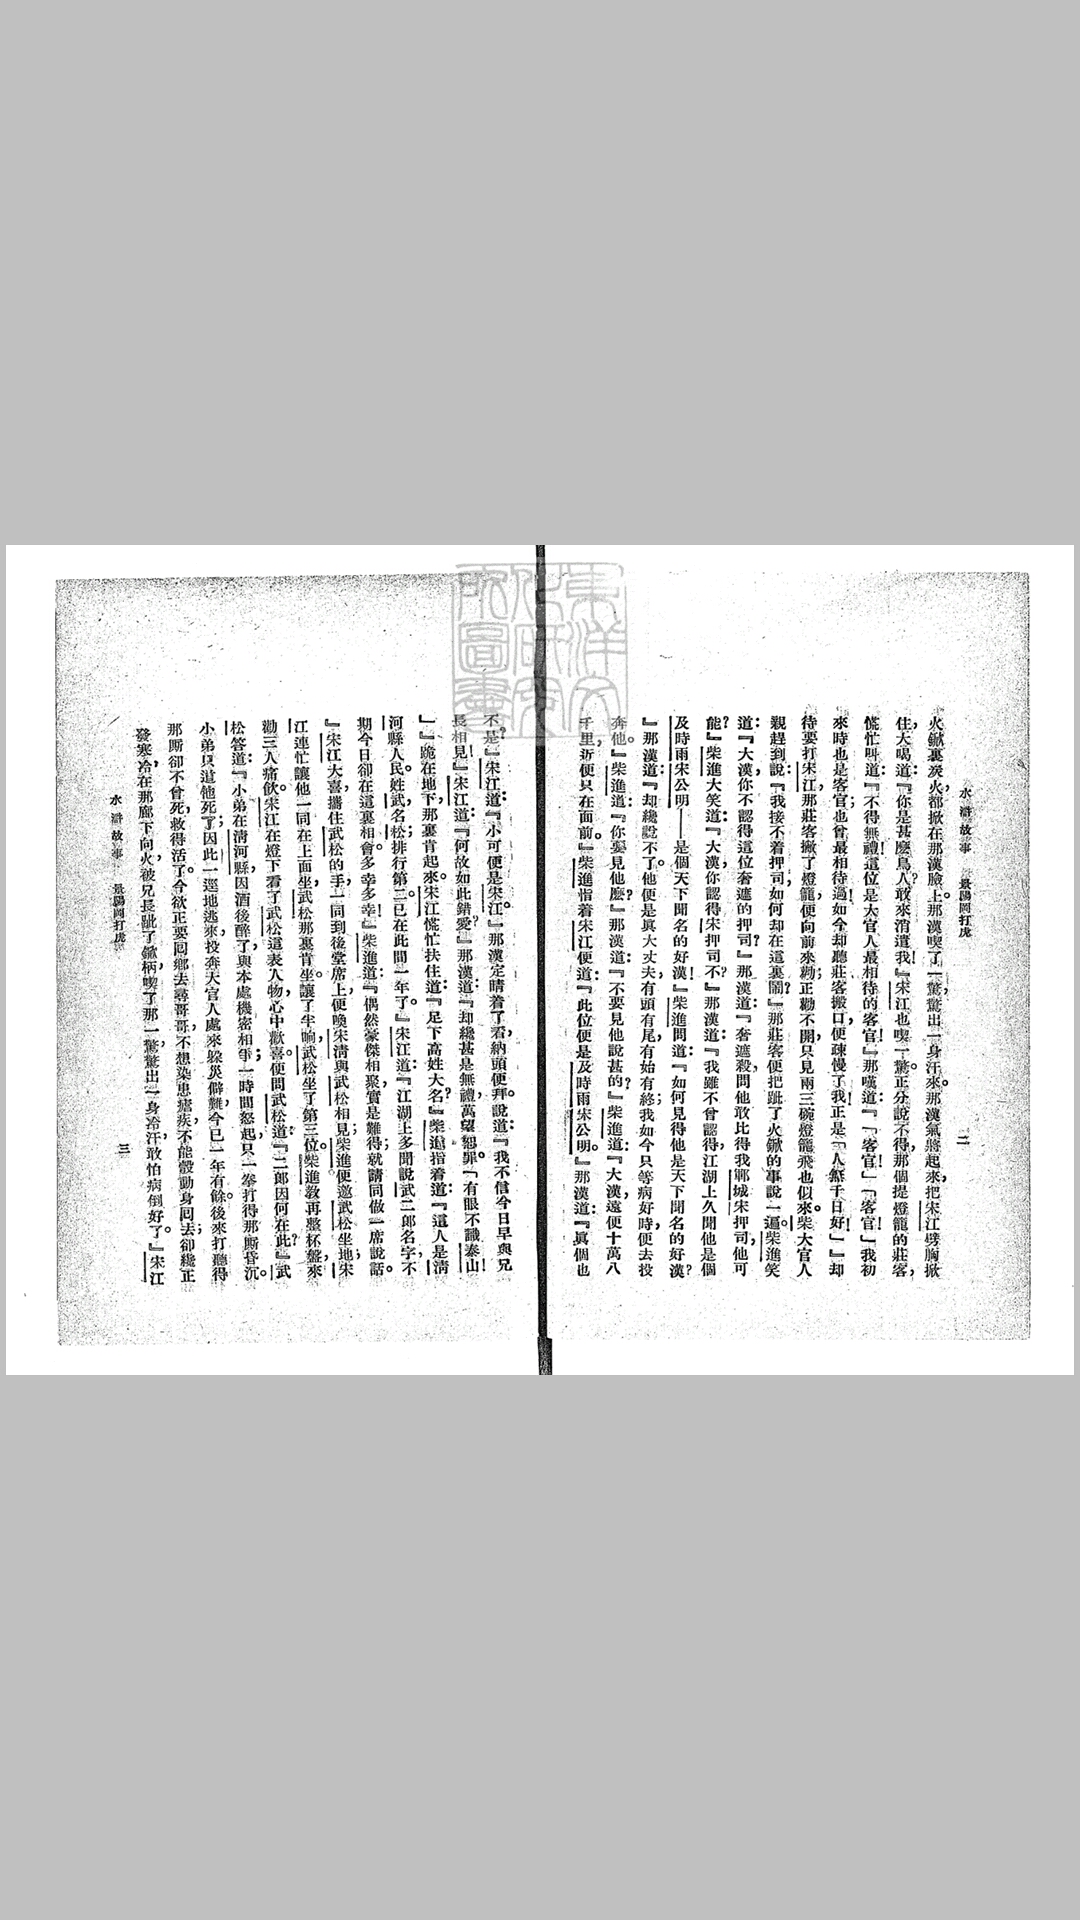 水滸故事 景陽岡打虎
二
火鍁裏炭火，都掀在那漢臉上。那漢喫了一驚，驚出一身汗來。那漢氣將起來，把宋江劈胸掀
住，大喝道：『你是甚麼鳥人，敢來消遣我！』宋江也喫一驚。正分說不得，那個提燈籠的莊客，
慌忙叫道：『不得無禮！這位是大官人最相待的客官！』那嘆道：『「客官！」「客官！」我初
來時也是客官；也曾最相待過！如今却聽莊客搬口，便疎慢了我！正是「人無千日好！」』却
待要打宋江，那莊客撇了燈籠，便向前來勸；正勸不開，只見兩三碗燈籠飛也似來。柴大官人
親趕到，說：『我接不着押司，如何却在這裏鬧？』那莊客便把跐了火鍁的事說一遍。柴進笑
道：『大漢，你不認得這位奢遮的押司？』那漢道：『奢遮殺，問他敢比得我鄆城宋押司，他可
能？』柴進大笑道：『大漢，你認得宋押司不？』那漢道：『我雖不曾認得，江湖上久聞他是個
及時雨宋公明——是個天下聞名的好漢！』柴進問道：『如何見得他是天下聞名的好漢？
』那漢道：『却纔說不了。他便是眞大丈夫，有頭有尾，有始有終；我如今只等病好時，便去投
奔他。』柴進道：『你要見他麼？』那漢道：『不要見他說甚的？』柴進道：『大漢，遠便十萬八
千里，近便只在面前。』柴進指着宋江便道：『此位便是及時雨宋公明。』那漢道：『眞個也
不是？』宋江道：『小可便是宋江。』那漢定睛看了看，納頭便拜。說道：『我不信今日早與兄
長相見！』宋江道：『何故如此錯愛？』那漢道：『却纔甚是無禮，萬望恕罪。「有眼不識泰山！
」』跪在地下，那裏肯起來。宋江慌忙扶住道：『足下高姓大名？』柴進指着道：『這人是清
河縣人民。姓武，名松，排行第二。已在此間一年了。』宋江道：『江湖上多聞說武二郎名字，不
期今日却在這裏相會。多幸多幸！』柴進道：『偶然豪傑相聚，實是難得；就請同做一席說話。
』宋江大喜，攜住武松的手，一同到後堂席上，便喚宋清與武松相見；柴進便邀武松坐地；宋
江連忙讓他一同在上面坐，武松那裏肯坐。讓了半晌，武松坐了第三位。柴進敎再整杯盤來，
勸三人痛飲。宋江在燈下看了武松這表人物，心中歡喜，便問武松道：『二郎因何在此？』武
松答道：『小弟在清河縣，因酒後醉了，與本處機密相爭；一時間怒起，只一拳打得那廝昏沉。
小弟只道他死了；因此一逕地逃來，投奔大官人處來躲災僻難，今已一年有餘。後來打聽得
那廝卻不曾死，救得活了。今欲正要囘鄉去尋哥哥，不想染患瘧疾，不能彀動身囘去；卻纔正
發寒冷，在那廊下向火，被兄長跐了鍁柄；喫了那一驚，驚出一身冷汗，敢怕病倒好了。』宋江
水滸故事 景陽岡打虎
三